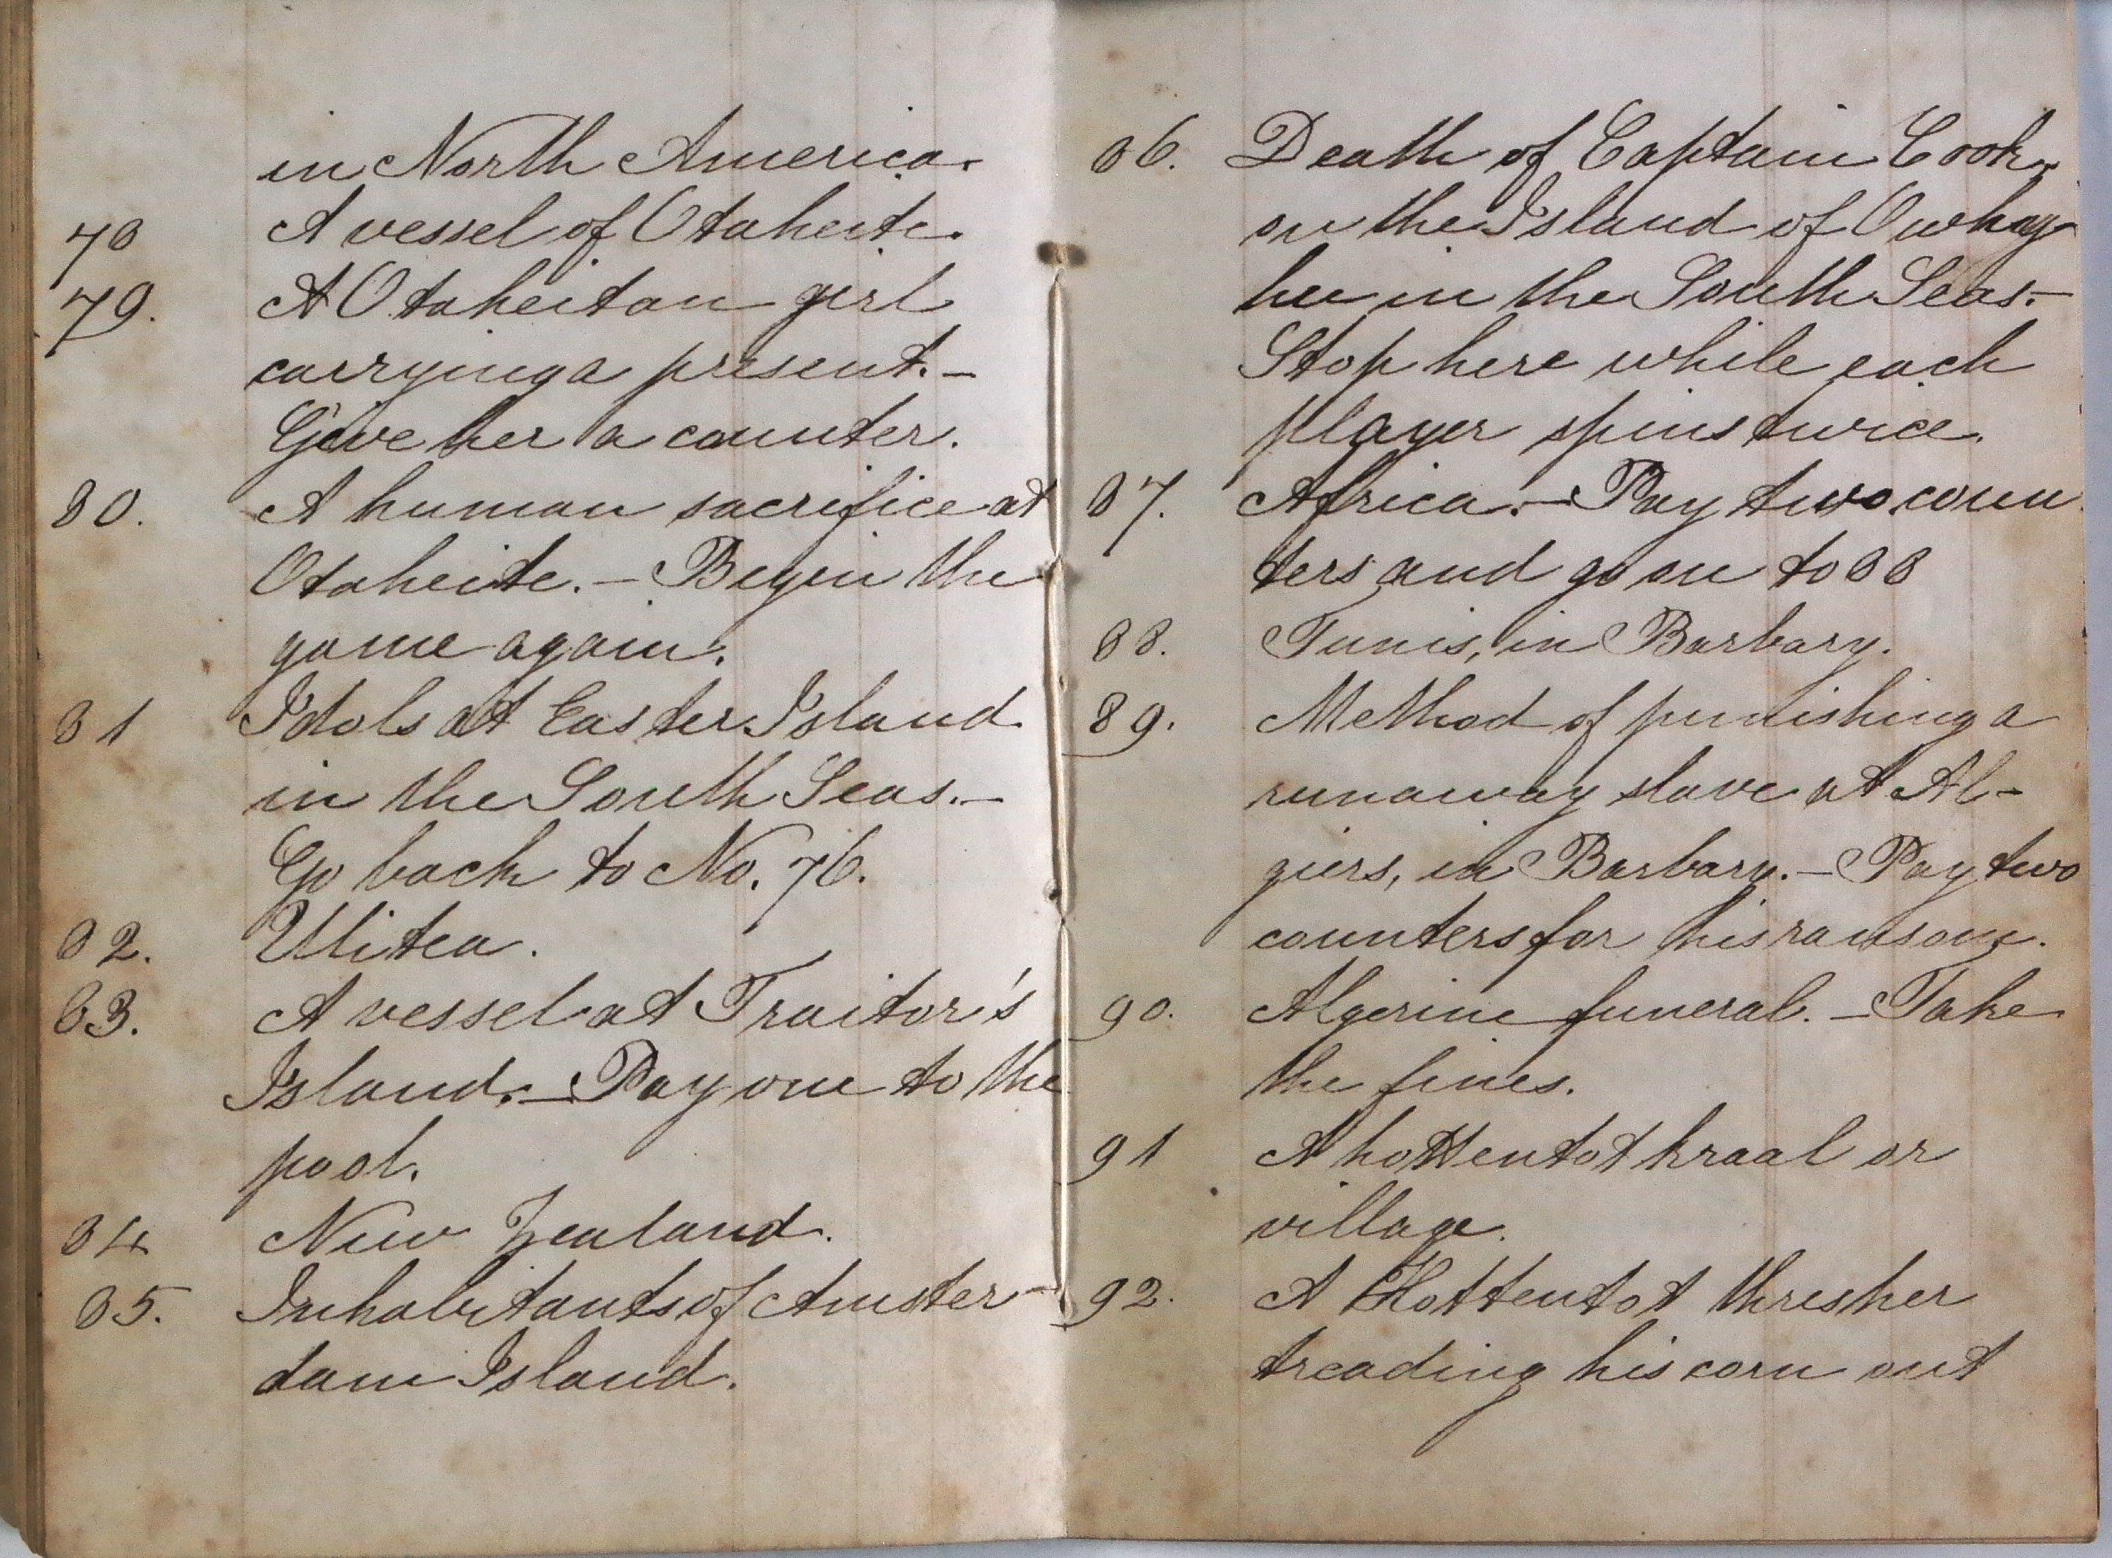 in North America.
78 A vessel of Otaheite.
79. A Otaheitan girl
carrying a present. —
Give her a counter.
80. A human sacrifice at
Otaheite. — Begin the
game again.
81 Idols at Easter Island
in the South Seas. —
Go back to No. 76.
82. Ulitea.
83. A vessel at Traitor's
Island. — Pay one to the
pool.
84 New Zealand.
85. Inhabitants of Amster-
dam Island.
86. Death of Captain Cook,
on the Island of Owhy-
hee in the South Seas. —
Stop here while each
player spins twice.
87. Africa. — Pay two coun
ters and go on to 88
88. Tunis, in Barbary.
89. Method of punishing a
runaway slave at Al-
giers, in Barbary. — Pay two
counters for his ransom.
90. Algerine funeral. — Take
the fines.
91 A hottentot kraal or
village.
92. A Hottentot thresher
treading his corn out